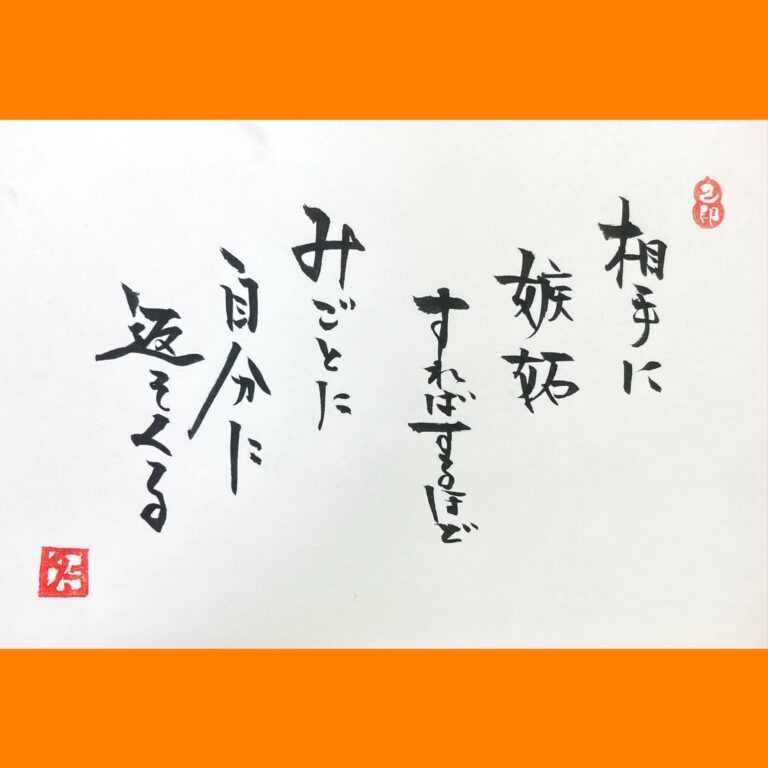 相手に
嫉妬
すればするほど
みごとに
自分に
返ってくる